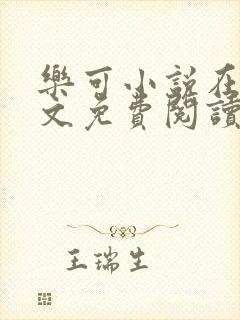 樂可小說在
文免費閱讀
王瑞生